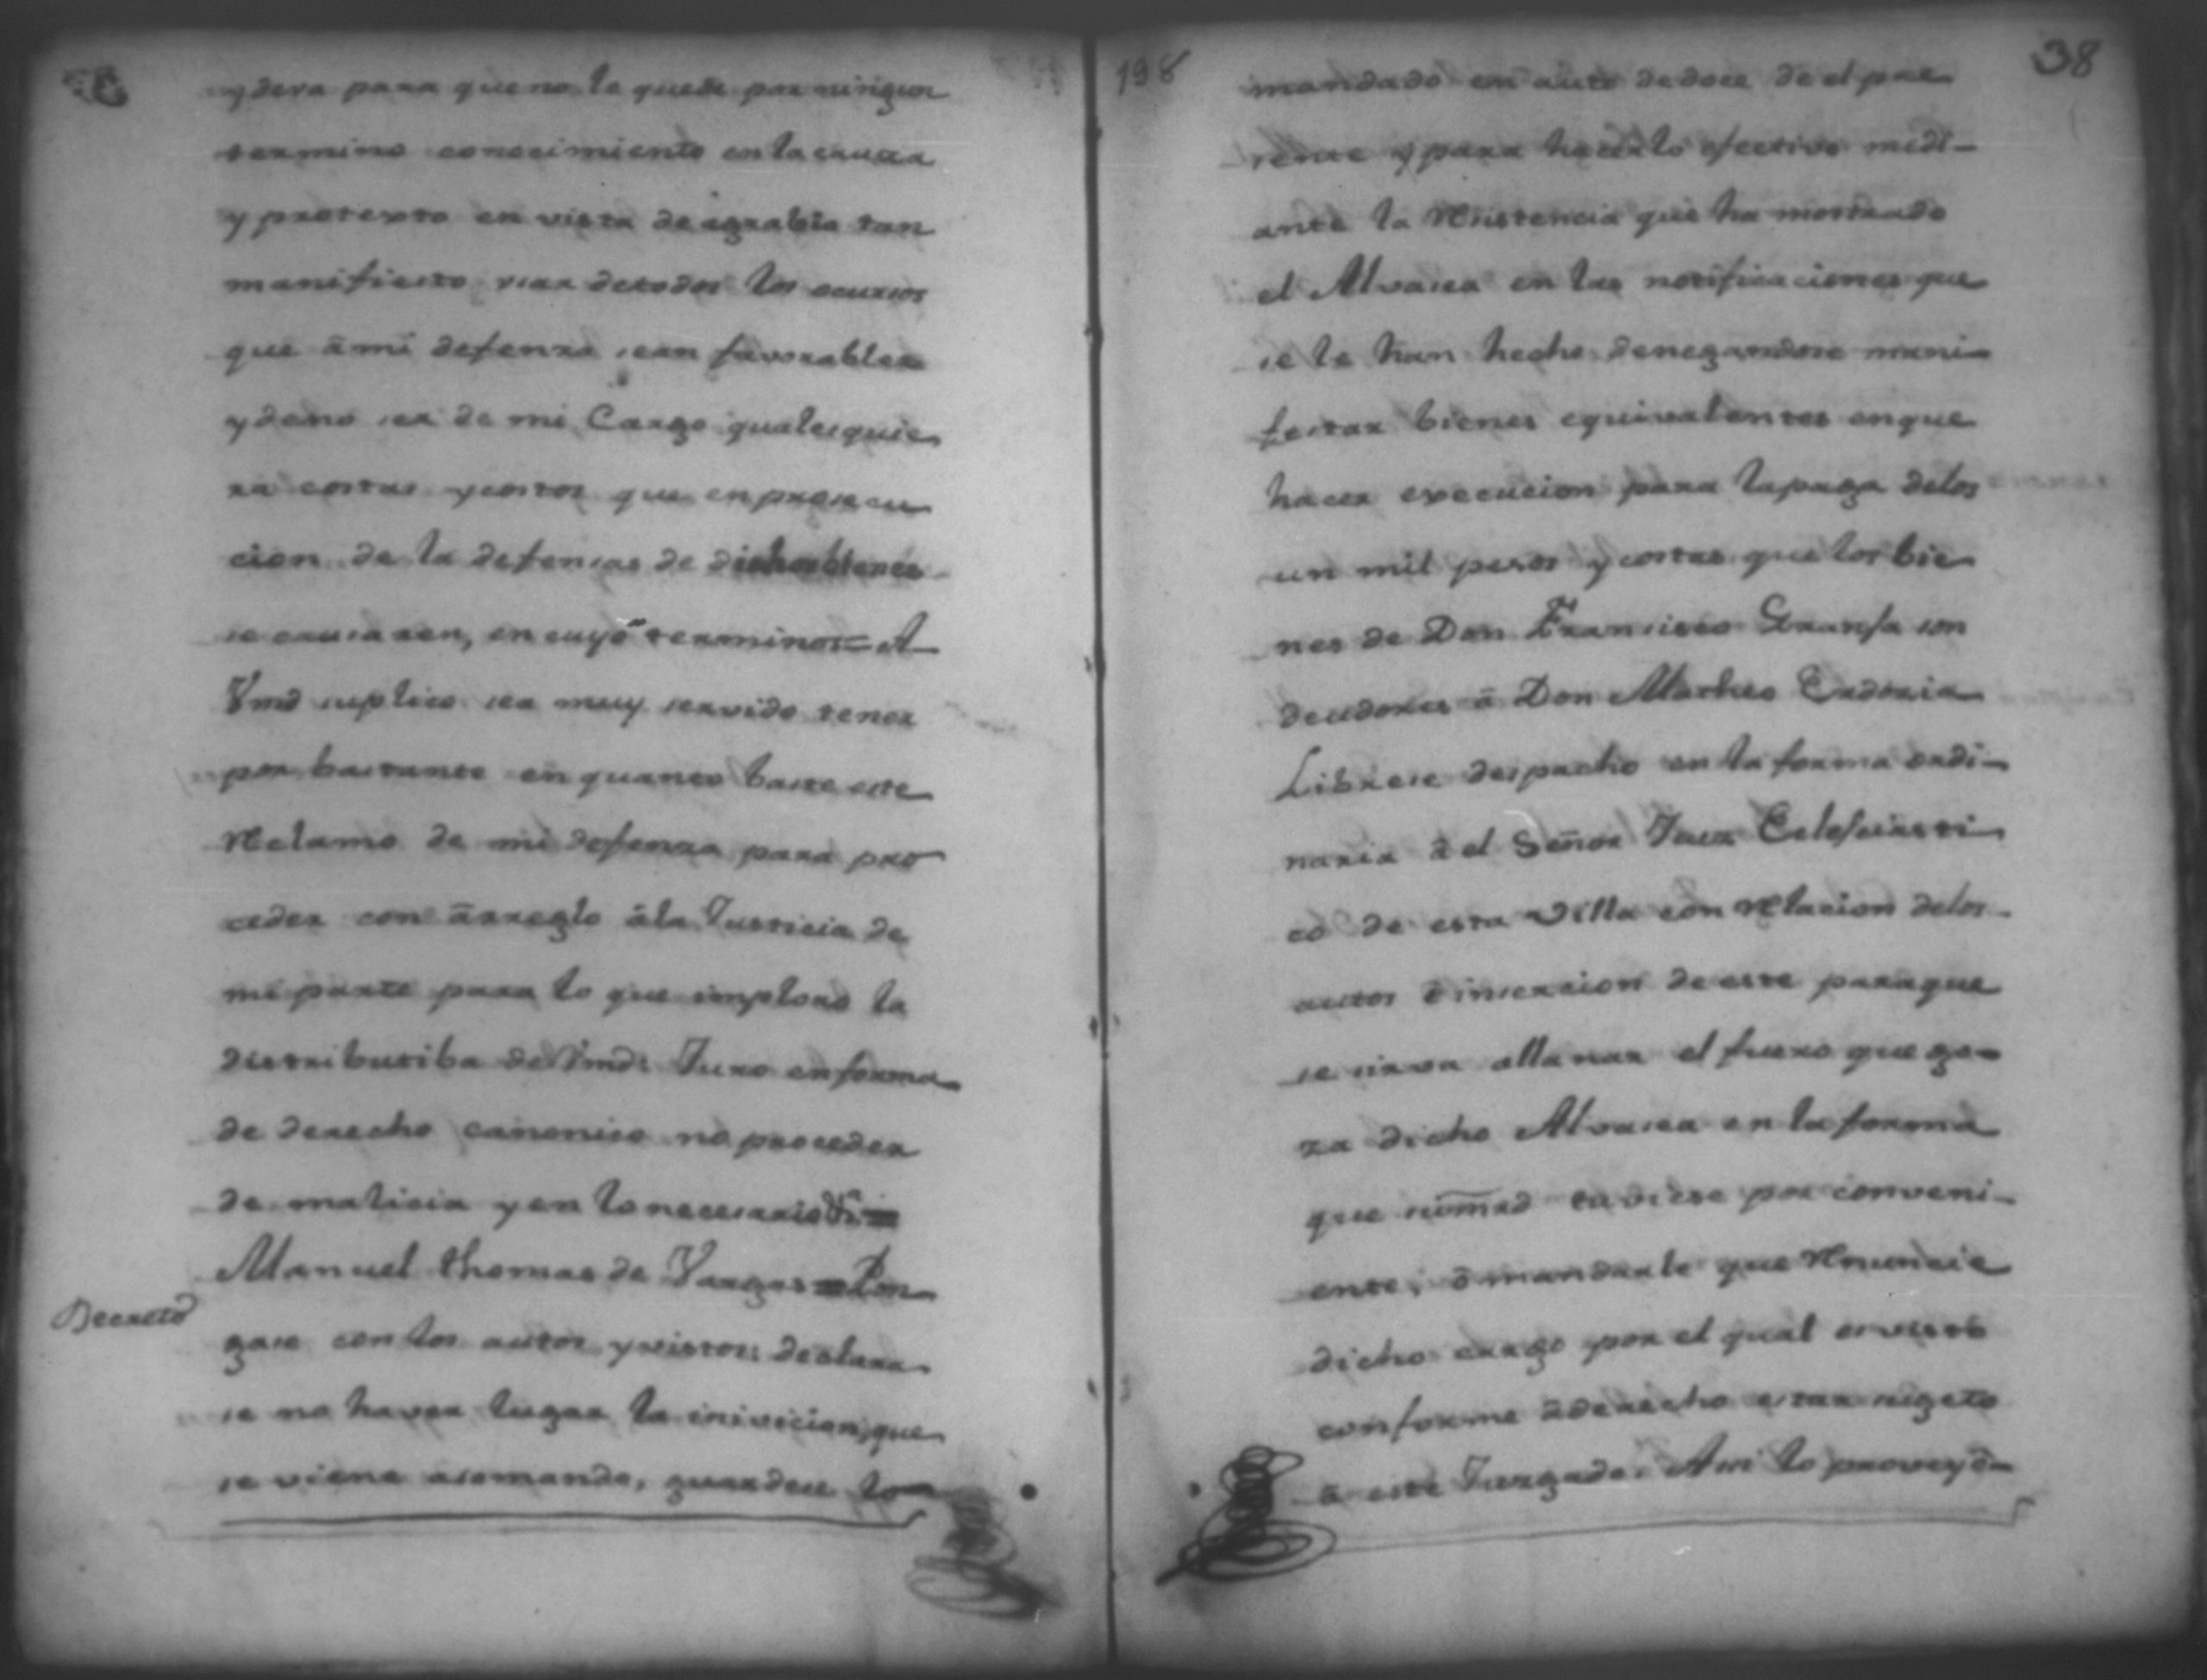 y deva para que no le quede por ningun
termino conocimiento en la causa
y protexto en vista de agrabio tan
manifiesto usar de todos los ocursos
que â mi defenza sean favorables
y de no ser de mi Cargo qualesquie
ra costas y costos que en prosecu
cion de la defensas de dichos bienes
se causaren, en cuyo terminos = A
Vmd suplico sea muy servido tener
por bastante en quanto baste este
Reclamo de mi defenza para pro
ceder con ârreglo â la Justicia de
mi parte para lo que imploro la
distributiba de Vmd: Juro en forma
de derecho canonico no proceder
de malicia y en lo necesario
Manuel thomas de Vargas = Pon
Decreto
gase con los autos y vistos: declara
se no haver lugar la inivicion que
se viene asomando, guardese lo
198
38
mandado en auto de doce de el pre
sente y para hacerlo efectivo medi-
ante la Resistencia que ha mostrado
el Alvasea en las notificaciones que
se le han hecho denegandose mani-
festar bienes equivalentes en que
hacer execucion para la paga de los
un mil pesos y costas que los bie
nes de Don Francisco son
deudores â Don Matheo
Librese despacho en la forma ordi-
naria â el Señor Juez Eclesiasti
co de esta Villa con Relacion de los
autos ê insercion de este para que
se sirva allanar el fuero que go-
za dicho Alvasea en la forma
que sumrd tuviese por conveni-
ente, ô mandarle que Renuncie
dicho cargo por el qual es visto
conforme â derecho estar sugeto
â este Juzgado. Assi lo proveyô